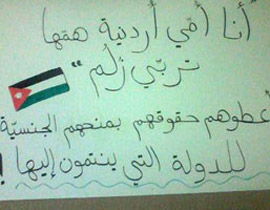 "أنا أمّي أردنية همّها
تربّي زلم"
أعطوهم حقوقهم بمنحهم الجنسيّة
للدولة التي ينتمون إليها !